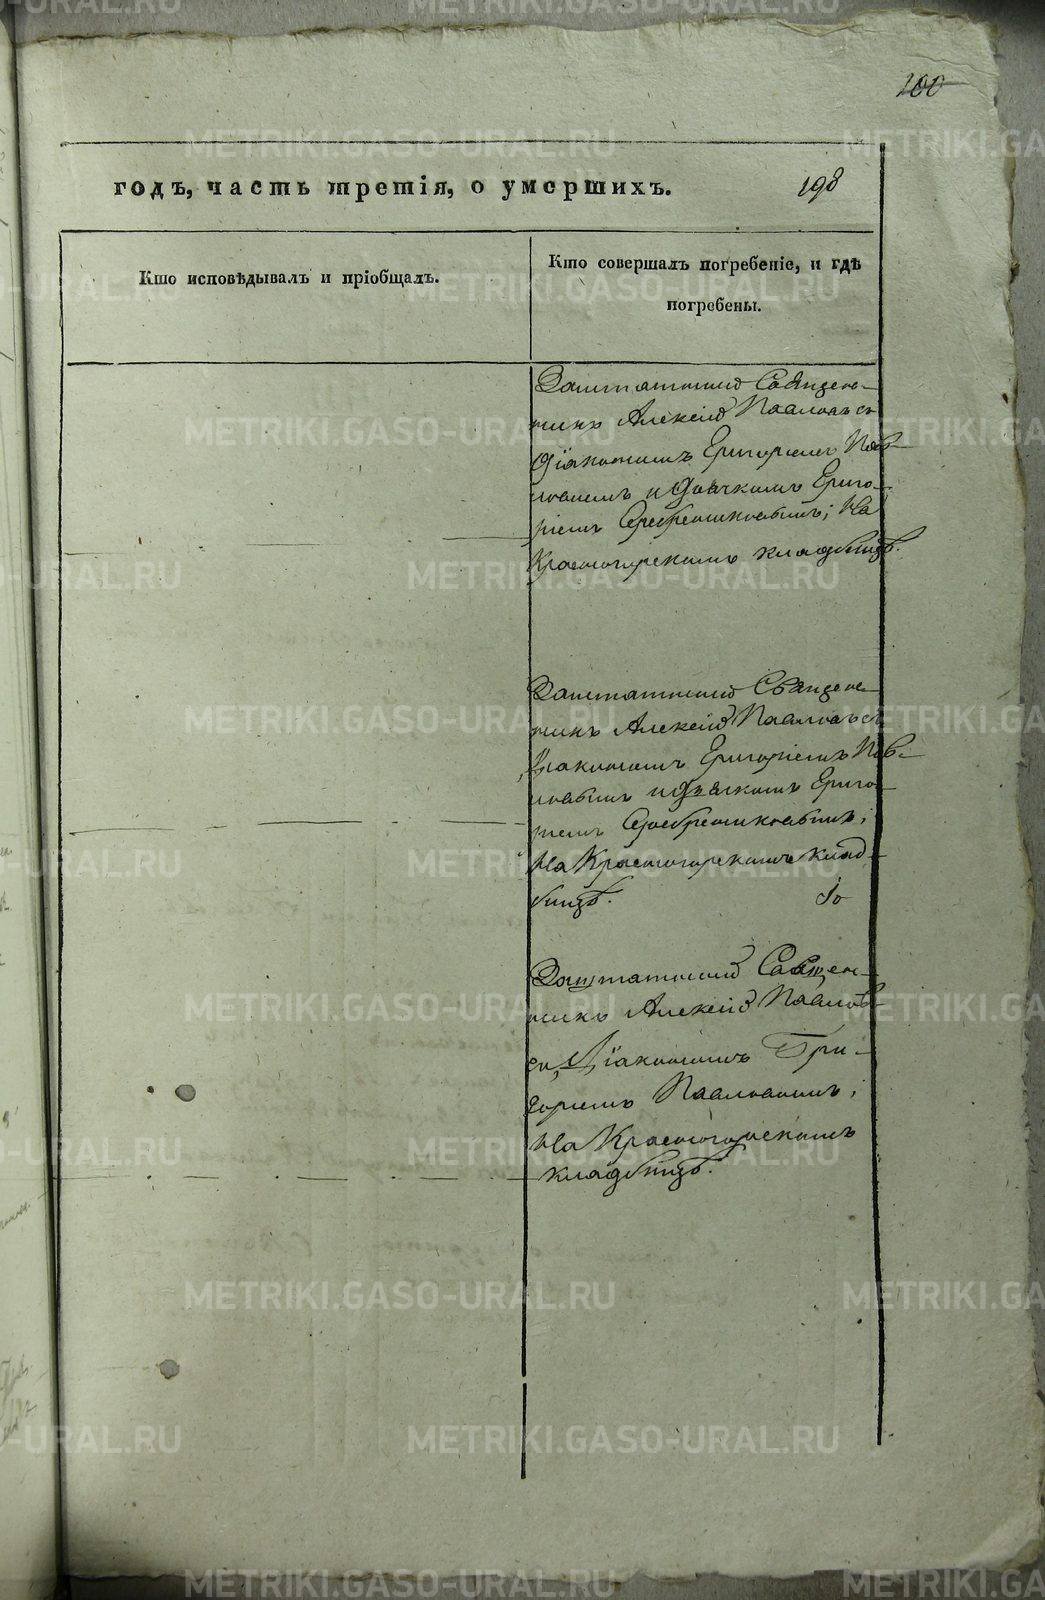 100
годъ, часть третія, о умершихъ. 198
Кто исповѣдывалъ и пріобщалъ.
Кто совершалъ погребеніе, и гдѣ
погребены.
Заштатный Священ-
никъ Алексій Павловъ съ
Діакономъ Григоріемъ Пав-
ловымъ и Дьячкомъ Григо-
ріемъ Серебренниковымъ; На
Красногорскомъ кладбищѣ.
Заштатный Священ-
никъ Алексій Павловъ съ
Діакономъ Григоріемъ Пав-
ловымъ и Дьячкомъ Григо-
ріемъ Серебренниковымъ;
На Красногорскомъ клад-
бищѣ.
Заштатный Священ-
никъ Алексій Павловъ
съ Діакономъ Гри-
горіемъ Павловымъ;
На Красногорскомъ
кладбищѣ.
METRIKI.GASO-URAL.RU